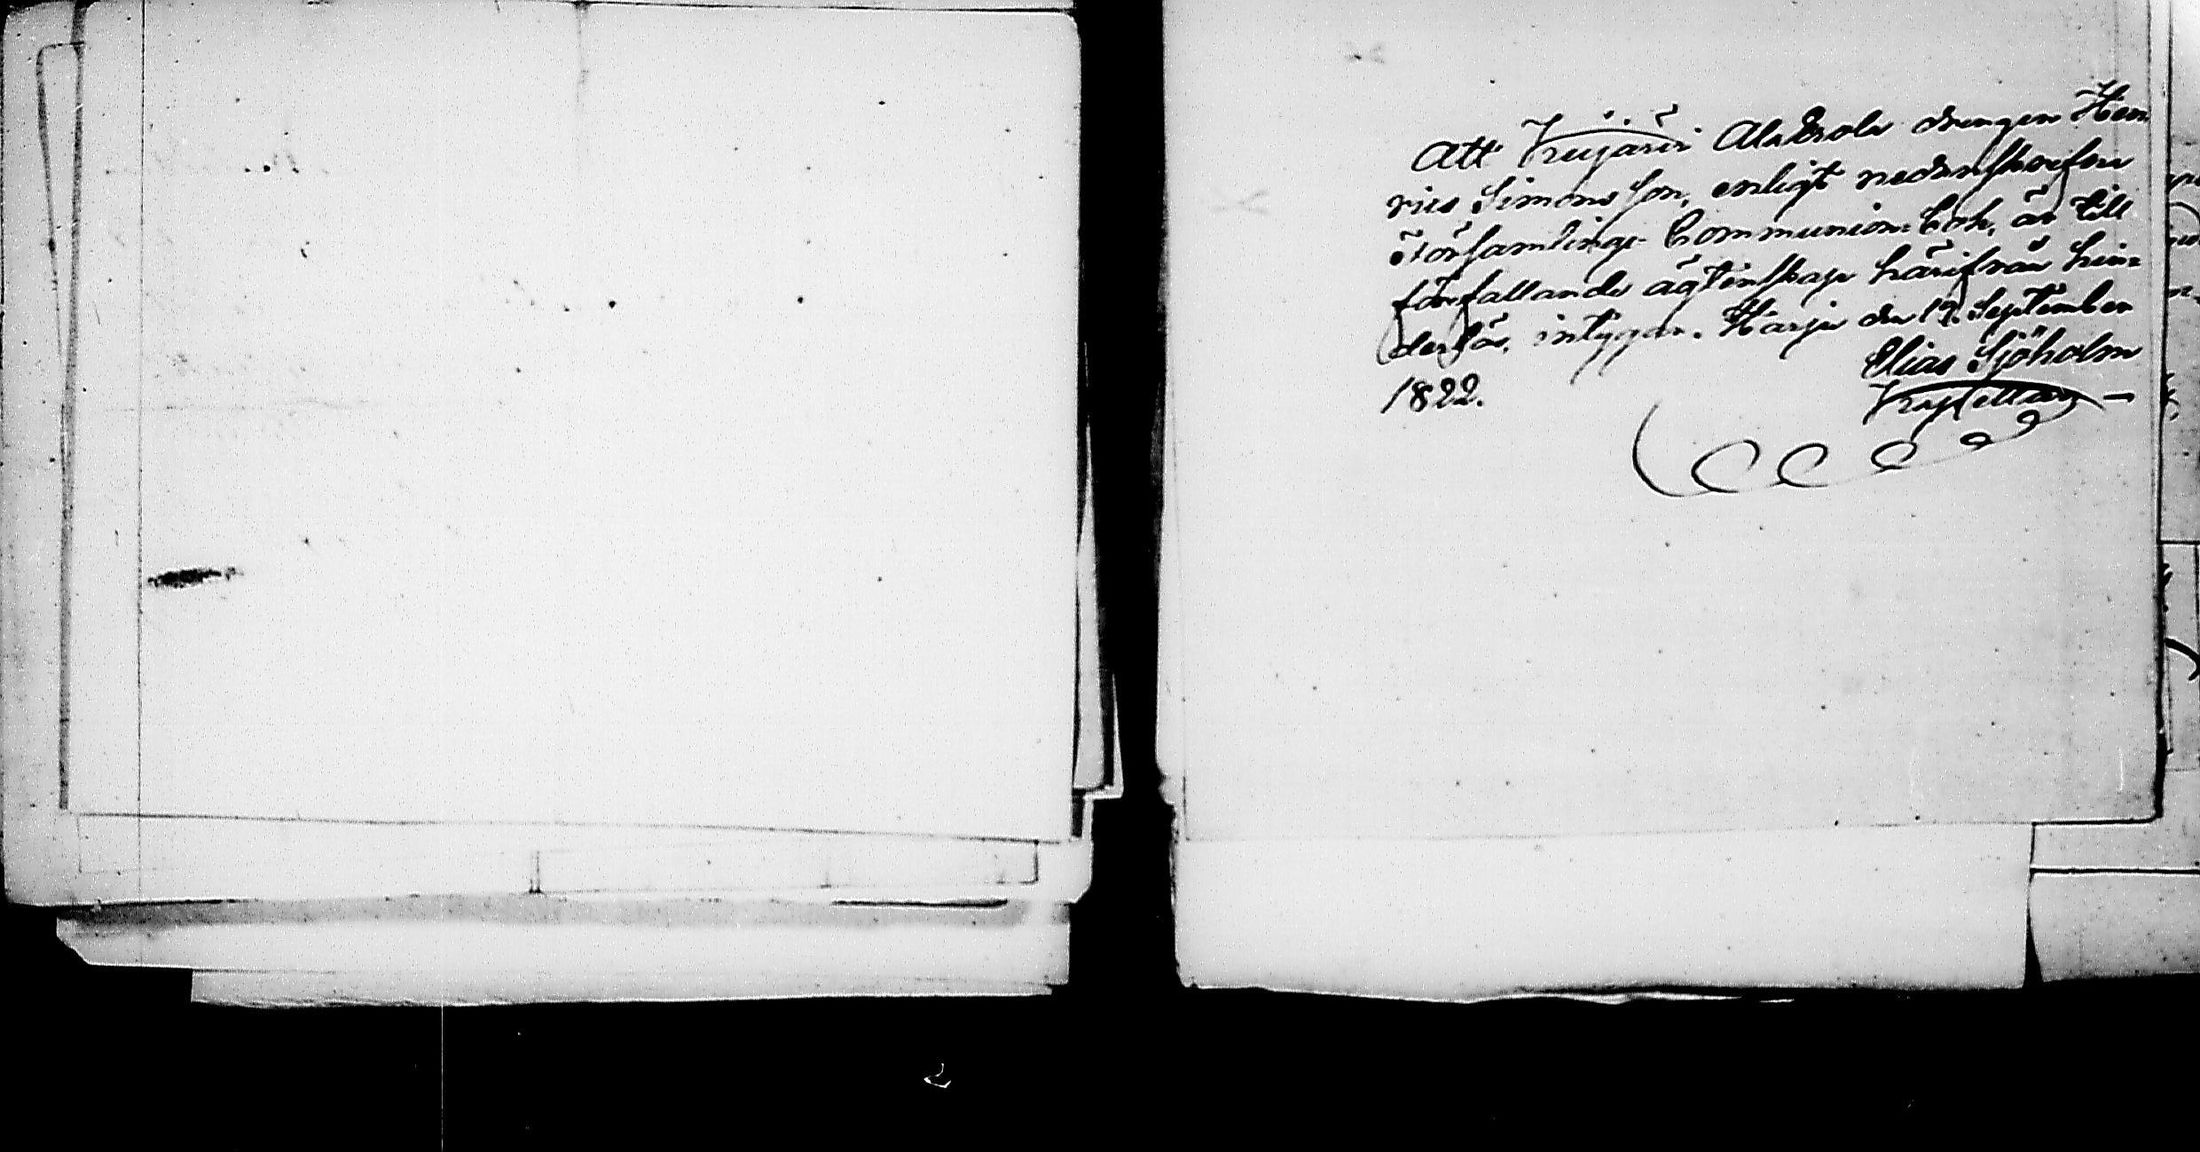 Att Kujäri Alakrola drengen Hen
rics Simons son, enligt nedanskrefne
Församlings Communion-bok, är till
förefallande ägtenskap härifrån hin=
derlös, intygar. Harju den 19. September
1822.
Elias Sjöholm
Kapellan